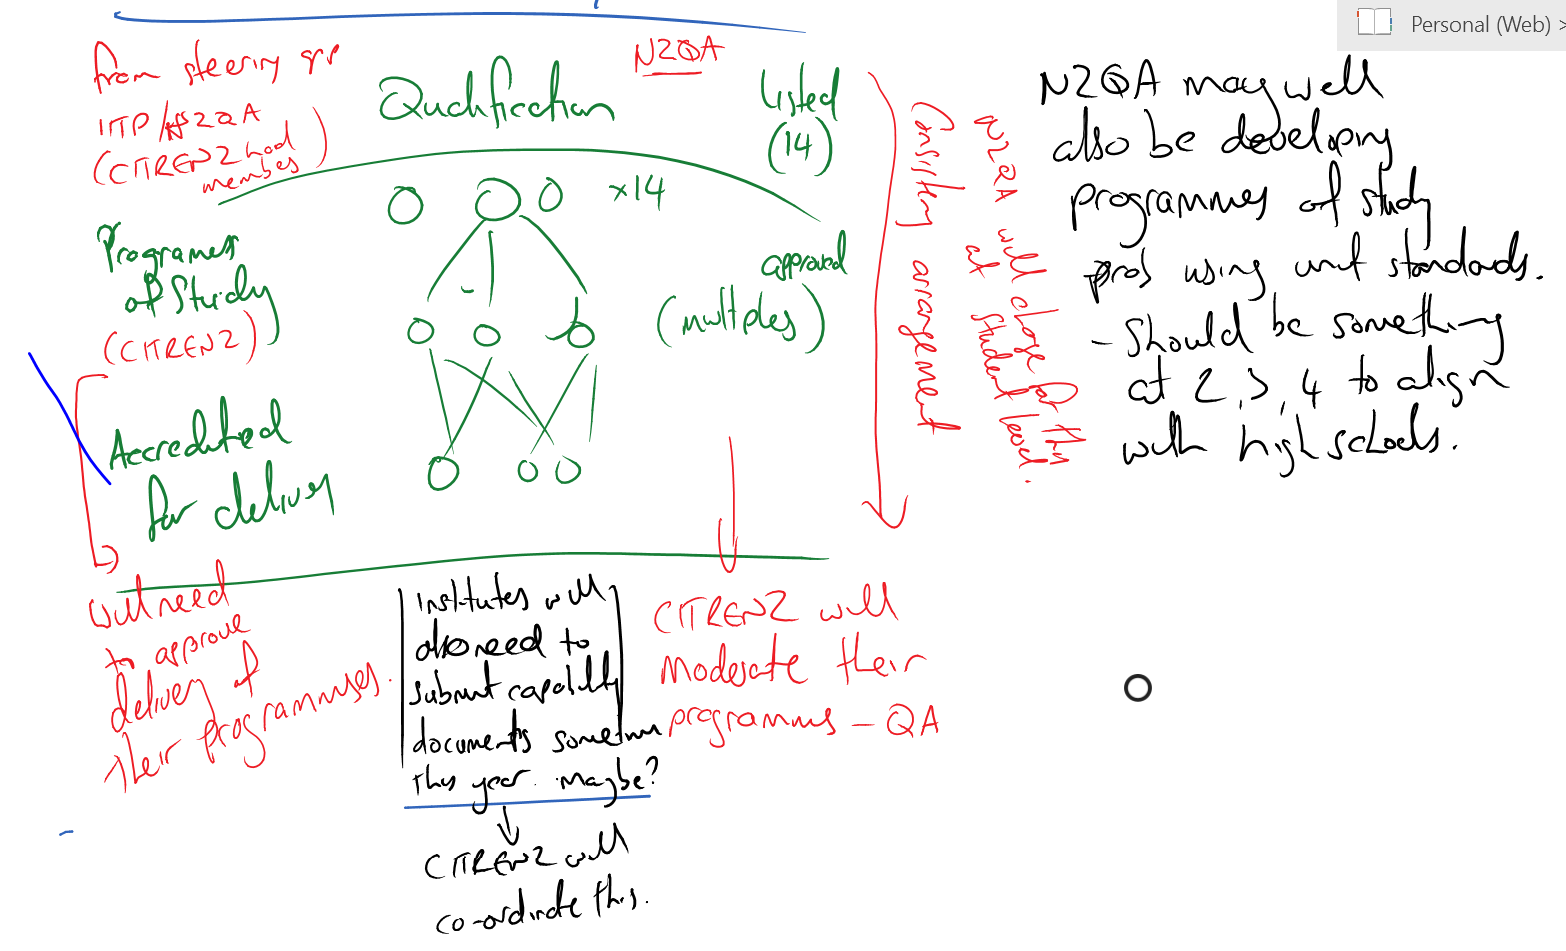 Personal (Web) >
from steering grp
ITP/NZQA
(CITRENZ had
members)
NZQA
Qualification
Listed
(14)
x14
Programmes
of Study
(CITRENZ)
approved
(multiples)
Accredited
for delivery
Consisting arrangement
NZQA will charge for this
at student level.
Will need
to approve
delivery of
their programmes.
Institutes will
also need to
submit capability
documents sometime
this year. maybe?
CITRENZ will
co-ordinate this.
CITRENZ will
Moderate their
programms - QA
NZQA may well
also be developing
programmes of study
using unit standards.
- Should be something
at 2, 3, 4 to align
with high schools.